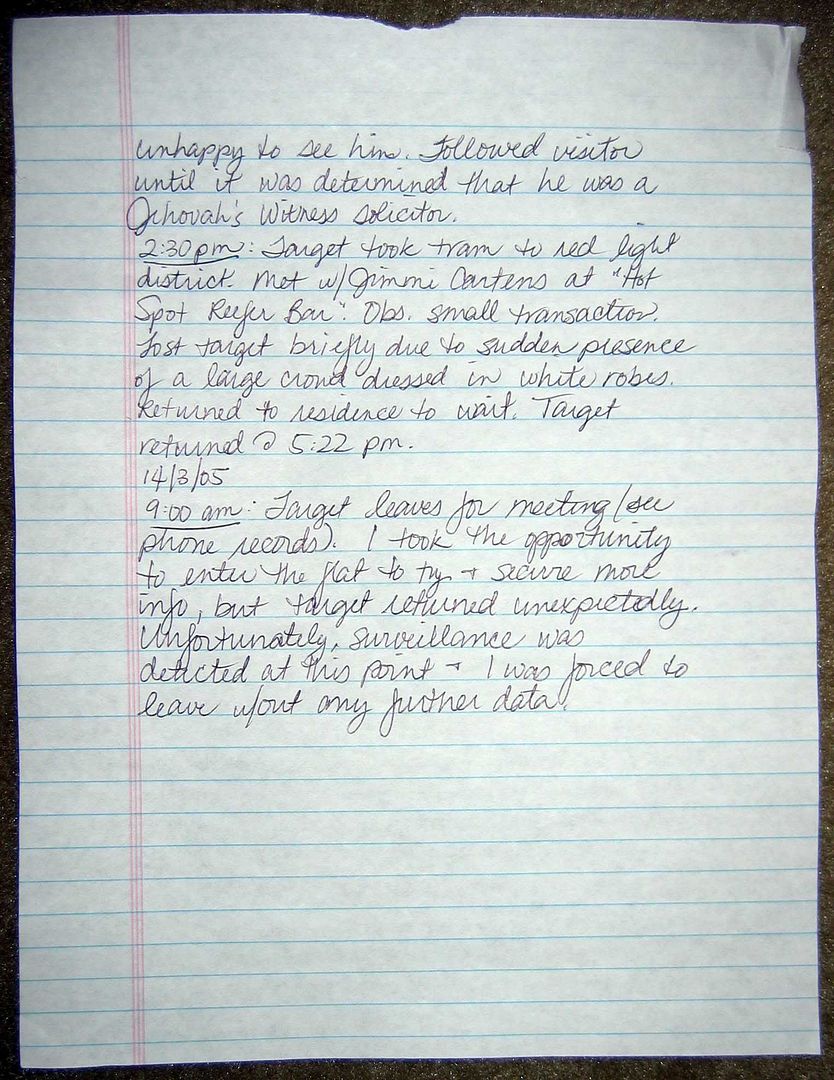 unhappy to see him. Followed visitor
until it was determined that he was a
Jehovah's Witness solicitor.
2:30 pm: Target took tram to red light
district. Met w/ Jimmi Cartens at "Hot
Spot Reefer Bar". Obs. small transaction.
Lost target briefly due to sudden presence
of a large crowd dressed in white robes.
Returned to residence to wait. Target
returned @ 5:22 pm.
14/3/05
9:00 am: Target leaves for meeting (see
phone records). I took the opportunity
to enter the flat to try + secure more
info, but target returned unexpectedly.
Unfortunately, surveillance was
detected at this point + I was forced to
leave w/out any further data.